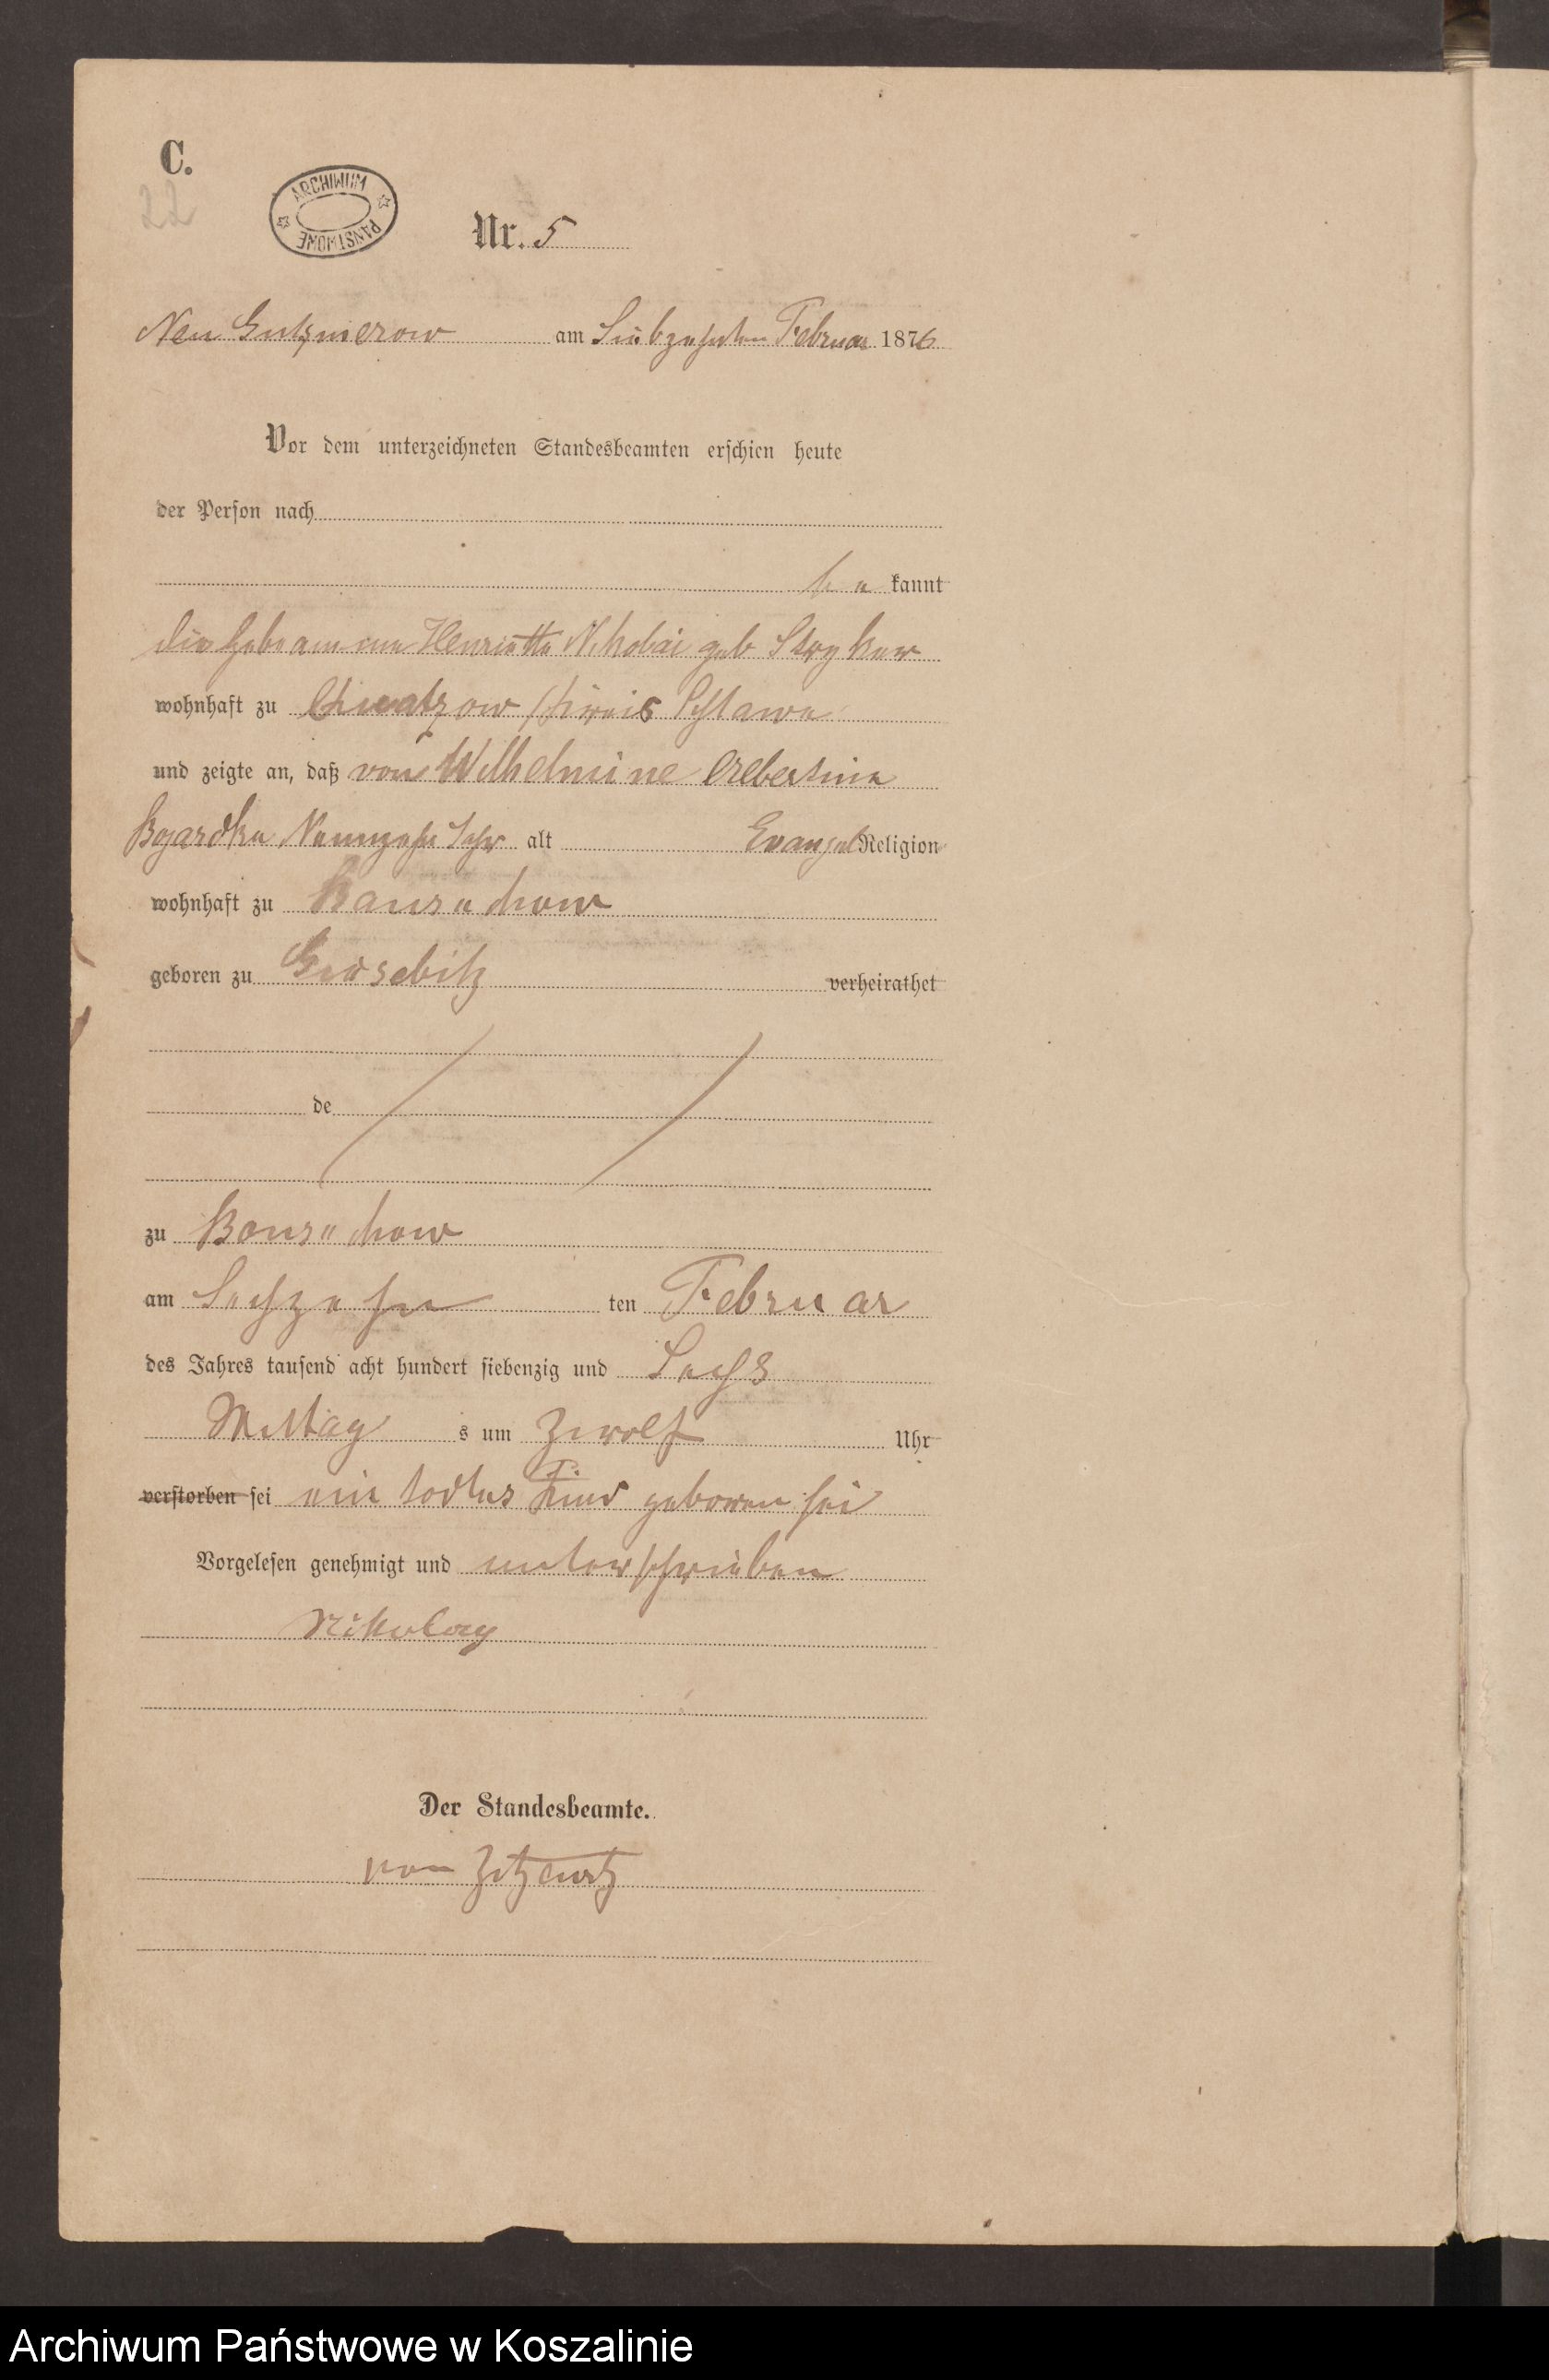 C.
22
ARCHIWUM PAŃSTWOWE
Nr. 5
Neu Gutzmerow am Siebzehnten Februar 1876
Vor dem unterzeichneten Standesbeamten erschien heute
der Person nach
be kannt
die Hebeamme Henriette Nikolai geb
wohnhaft zu Chwatzow Kreis Schlawe
und zeigte an, daß von Wilhelmine Albertine
Neunzehn Jahr alt Evangel Religion
wohnhaft zu
geboren zu verheirathet
de
zu
am Sechzehn ten Februar
des Jahres tausend acht hundert siebenzig und Sechs
Mittag s um Zwölf Uhr
verstorben sei ein todtes Kind geboren sei
Vorgelesen genehmigt und unterschrieben
Nikolay
Der Standesbeamte.
von Zitzewitz
Archiwum Państwowe w Koszalinie